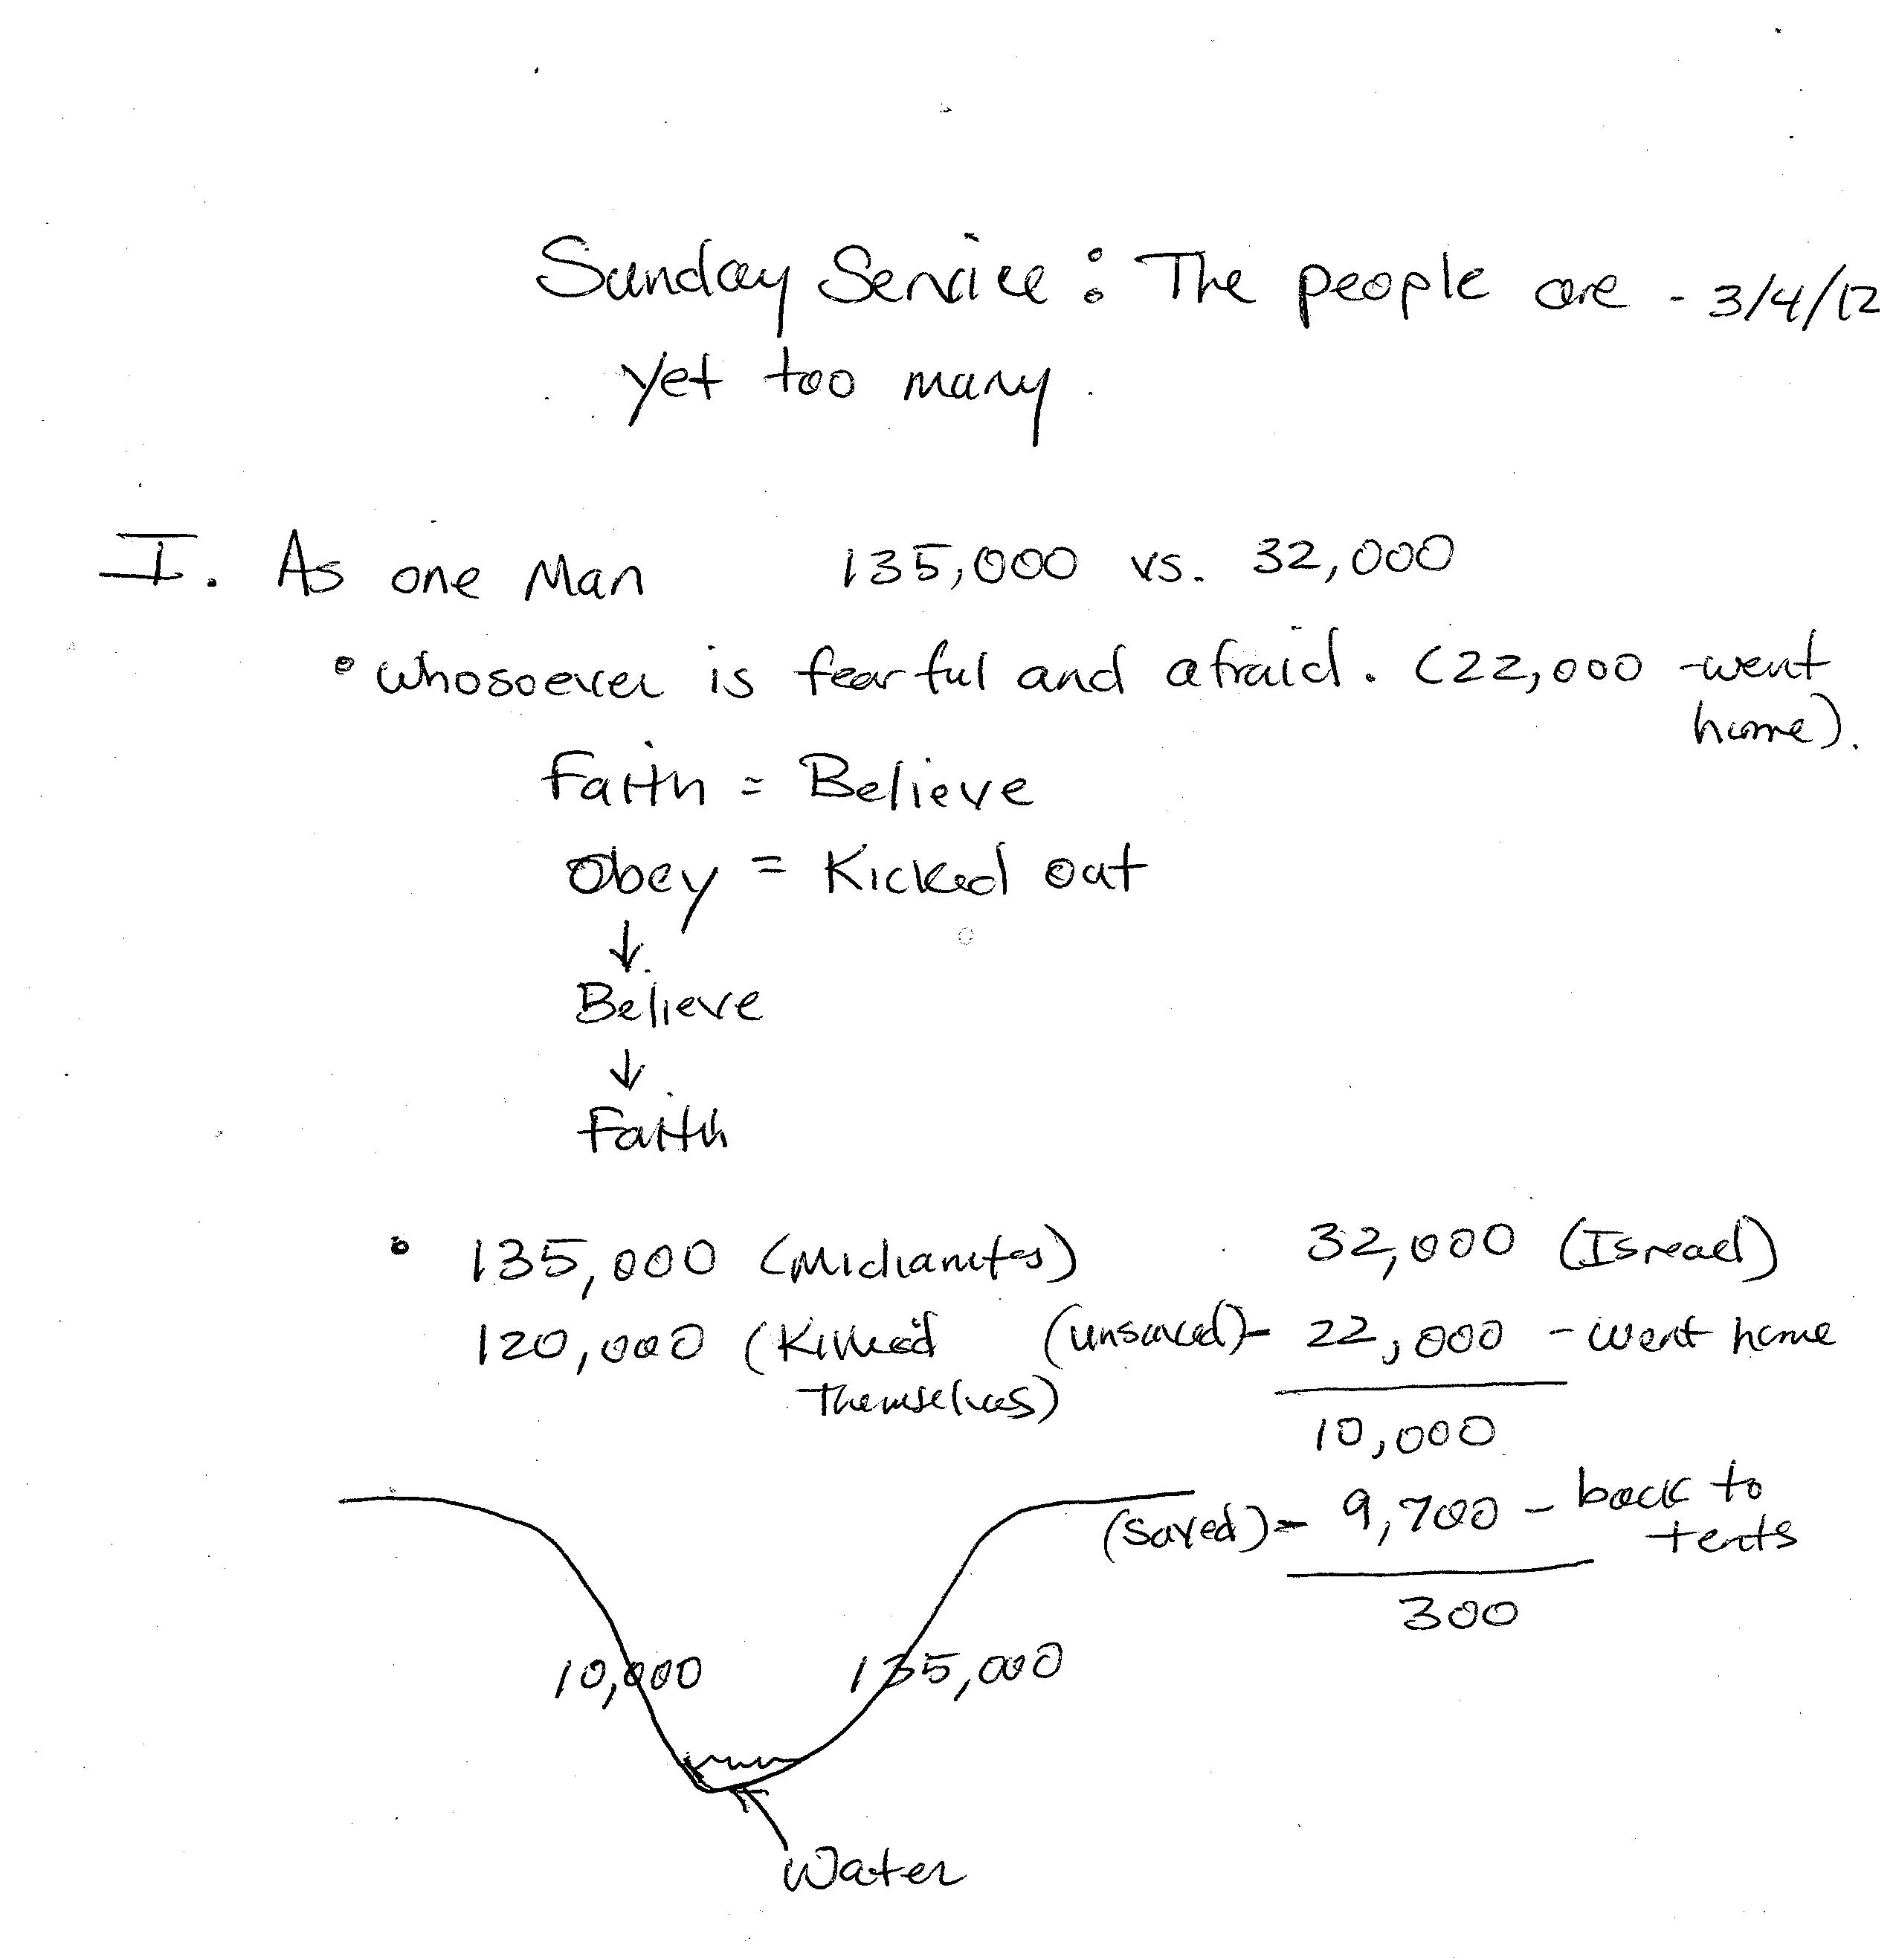 Sunday Service: The people are - 3/4/12
yet too many.
I. As one Man 135,000 vs. 32,000
• whosoever is fearful and afraid. (22,000 -went
home).
Faith = Believe
Obey = Kicked out
↓
Believe
↓
Faith
• 135,000 (Midianites) 32,000 (Isreael)
120,000 (Killed (unsaved)- 22,000 - went home
Themselves)
10,000
(saved)- 9,700 - back to
tents
300
10,000 135,000
Water